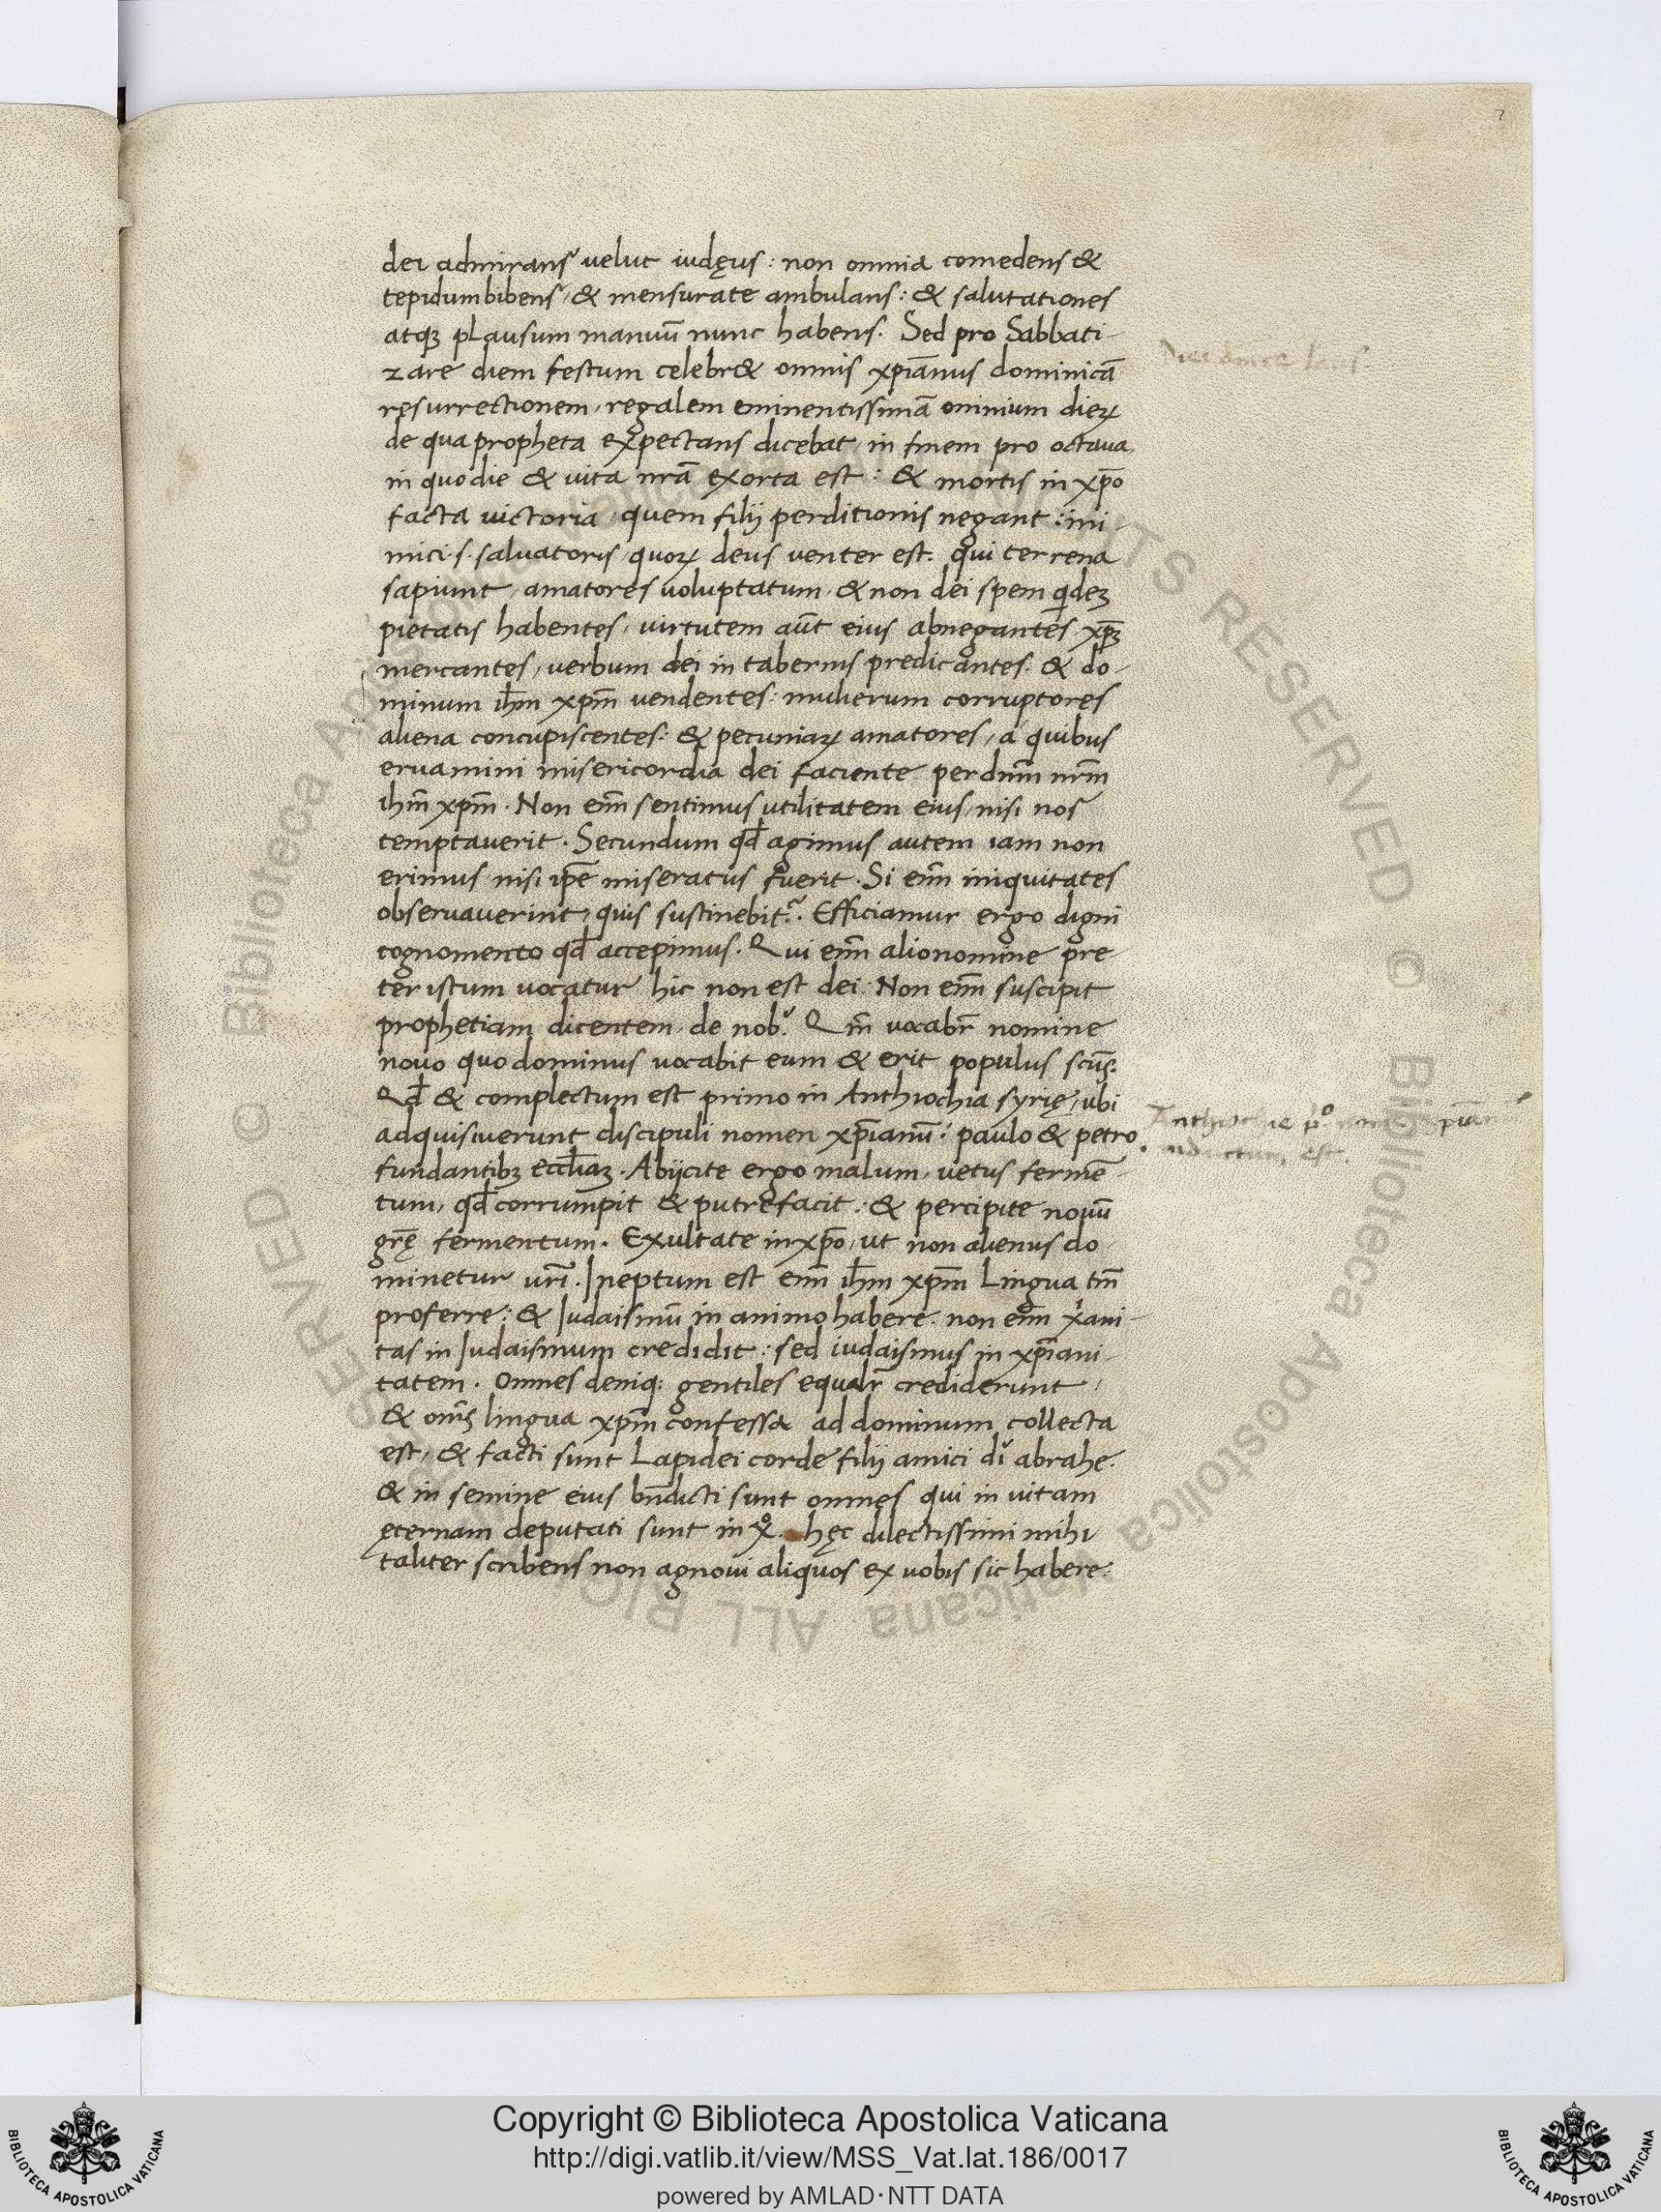 7
dei admirans velut iudęus: non omnia comedens &
tepidum bibens, & mensurate ambulans: & salutationes
atqꝫ plausum manuū nunc habens. Sed pro Sabbati-
zare diem festum celebr& omnis xp̄ianus dominicā
resurrectionem, regalem eminentissimā omnium dieꝝ
de qua propheta expectans dicebat, in finem pro octaua,
in quo die & uita nr̄a exorta est: & mortis in xp̄o
facta uictoria, quem filij perditionis negant: ini-
mici .s. saluatoris, quoꝝ deus venter est. qui terrena
sapiunt, amatores uoluptatum, & non dei spem qͥdeꝫ
pietatis habentes, virtutem aūt eius abnegantes, xp̄ꝫ
mercantes, verbum dei in tabernis predicantes. & do-
minum ih̄m xp̄m vendentes: mulierum corruptores
aliena concupiscentes: & pecuniaꝝ amatores, a quibus
eruamini misericordia dei faciente per dn̄m nr̄m
ih̄m xp̄m. Non eni̅m sentimus utilitatem eius, nisi nos
temptaverit. Secundum qd̄ agimus autem iam non
erimus nisi ip̄e miseratus fuerit. Si eni̅m iniquitates
observauerint, quis sustinebit?. Efficiamur ergo digni
cognomento qd̄ accepimus. Qui eni̅m alio nomine pre
ter istum vocatur hic non est dei. Non eni̅m suscipit
prophetiam dicentem, de nob᷒. Qm̄ vocabr̄ nomine
novo quo dominus vocabit eum & erit populus scūs.
Qd̄ & complectum est primo in Anthiochia syrię, ubi
adquisiuerunt discipuli nomen xp̄ianū: paulo & petro
fundantibꝫ eccl̄iaꝫ. Abijcite ergo malum, uetus fermē
tum, qd̄ corrumpit & putrefacit: & percipite nouū
gr̄ę fermentum. Exultate in xp̄o, ut non alienus do
minetur vr̄i. Ineptum est eni̅m ih̄m xp̄m Lingua tm̄
proferre: & Iudaismū in animo habere. non eni̅m xͥani-
tas in Iudaismum credidit: sed iudaismus in xp̄iani-
tatem. Omnes deniqꝫ gentiles equalr̄ crediderunt,
& om̄s lingua xp̄m confessa ad dominum collecta
est, & facti sunt Lapidei corde filij amici di᷒ abrahe.
& in semine eius bn̄dicti sunt omnes qui in uitam
ęternam deputati sunt in xͦ. hęc dilectissimi mihi
taliter scribens non agnoui aliquos ex uobis sic habere.
Anthiochie pͦ
est.
Copyright © Biblioteca Apostolica Vaticana
http://digi.vatlib.it/view/MSS_Vat.lat.186/0017
powered by AMLAD·NTT DATA
BIBLIOTECA APOSTOLICA VATICANA
BIBLIOTECA APOSTOLICA VATICANA